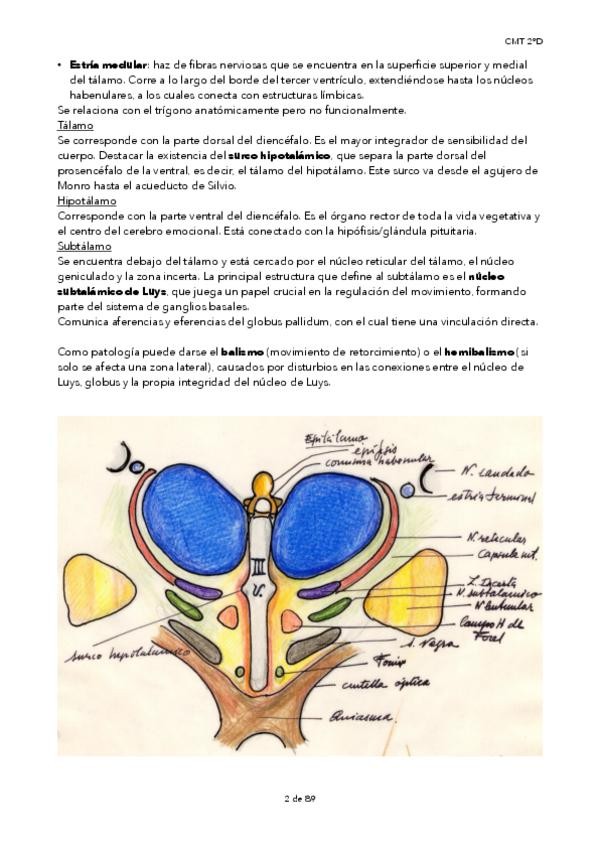 CMT 2ºD
• Estría medular: haz de fibras nerviosas que se encuentra en la superficie superior y medial
del tálamo. Corre a lo largo del borde del tercer ventrículo, extendiéndose hasta los núcleos
habenulares, a los cuales conecta con estructuras límbicas.
Se relaciona con el trígono anatómicamente pero no funcionalmente.
Tálamo
Se corresponde con la parte dorsal del diencéfalo. Es el mayor integrador de sensibilidad del
cuerpo. Destacar la existencia del surco hipotalámico, que separa la parte dorsal del
prosencéfalo de la ventral, es decir, el tálamo del hipotálamo. Este surco va desde el agujero de
Monro hasta el acueducto de Silvio.
Hipotálamo
Corresponde con la parte ventral del diencéfalo. Es el órgano rector de toda la vida vegetativa y
el centro del cerebro emocional. Está conectado con la hipófisis/glándula pituitaria.
Subtálamo
Se encuentra debajo del tálamo y está cercado por el núcleo reticular del tálamo, el núcleo
geniculado y la zona incerta. La principal estructura que define al subtálamo es el núcleo
subtalámico de Luys, que juega un papel crucial en la regulación del movimiento, formando
parte del sistema de ganglios basales.
Comunica aferencias y eferencias del globus pallidum, con el cual tiene una vinculación directa.
Como patología puede darse el balismo (movimiento de retorcimiento) o el hemibalismo (si
solo se afecta una zona lateral), causados por disturbios en las conexiones entre el núcleo de
Luys, globus y la propia integridad del núcleo de Luys.
Epitálamo
epífisis
comisura habenular
N. caudado
estría terminal
N. reticular
Capsula int.
Z. Incerta
N. subtalamico
N. lenticular
Campos H de
Forel
S. Negra
Fornix
cintilla óptica
Quiasma.
surco hipotalamico
III
V.
2 de 89